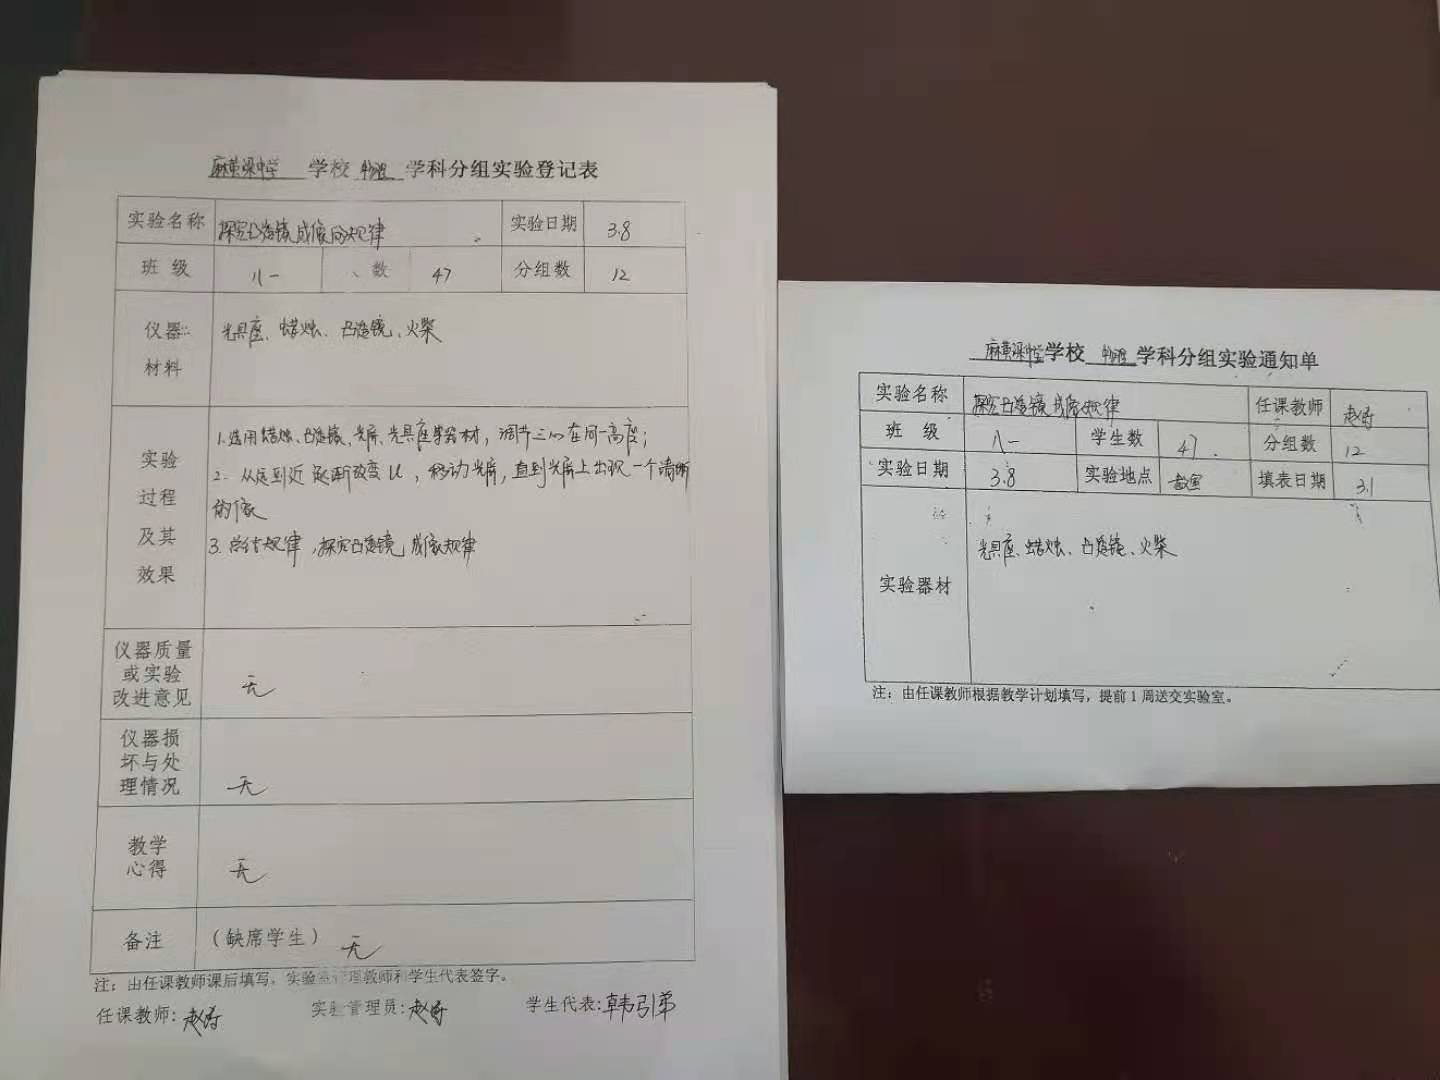 麻黄梁中学 学校 物理 学科分组实验登记表
实验名称 探究凸透镜成像的规律 实验日期 3.8
班 级 八一 数 47 分组数 12
仪器
材料
光具座、蜡烛、凸透镜、火柴
实验
过程
及其
效果
1.选用蜡烛、凸透镜、光屏、光具座等器材，调节三心在同一高度；
2. 从远到近 逐渐改变 u ，移动光屏，直到光屏上出现一个清晰
的像
3. 总结规律，探究凸透镜成像规律
仪器质量
或实验
改进意见
无
仪器损
坏与处
理情况
无
教学
心得
无
备注 （缺席学生） 无
注：由任课教师课后填写，实验室管理教师和学生代表签字。
任课教师： 实验管理员： 学生代表:韩引弟
麻黄梁中学 学校 物理 学科分组实验通知单
实验名称 探究凸透镜成像规律 任课教师
班 级 八一 学生数 47 分组数 12
实验日期 3.8 实验地点 教室 填表日期 3.1
实验器材
光具座、蜡烛、凸透镜、火柴
注：由任课教师根据教学计划填写，提前 1 周送交实验室。